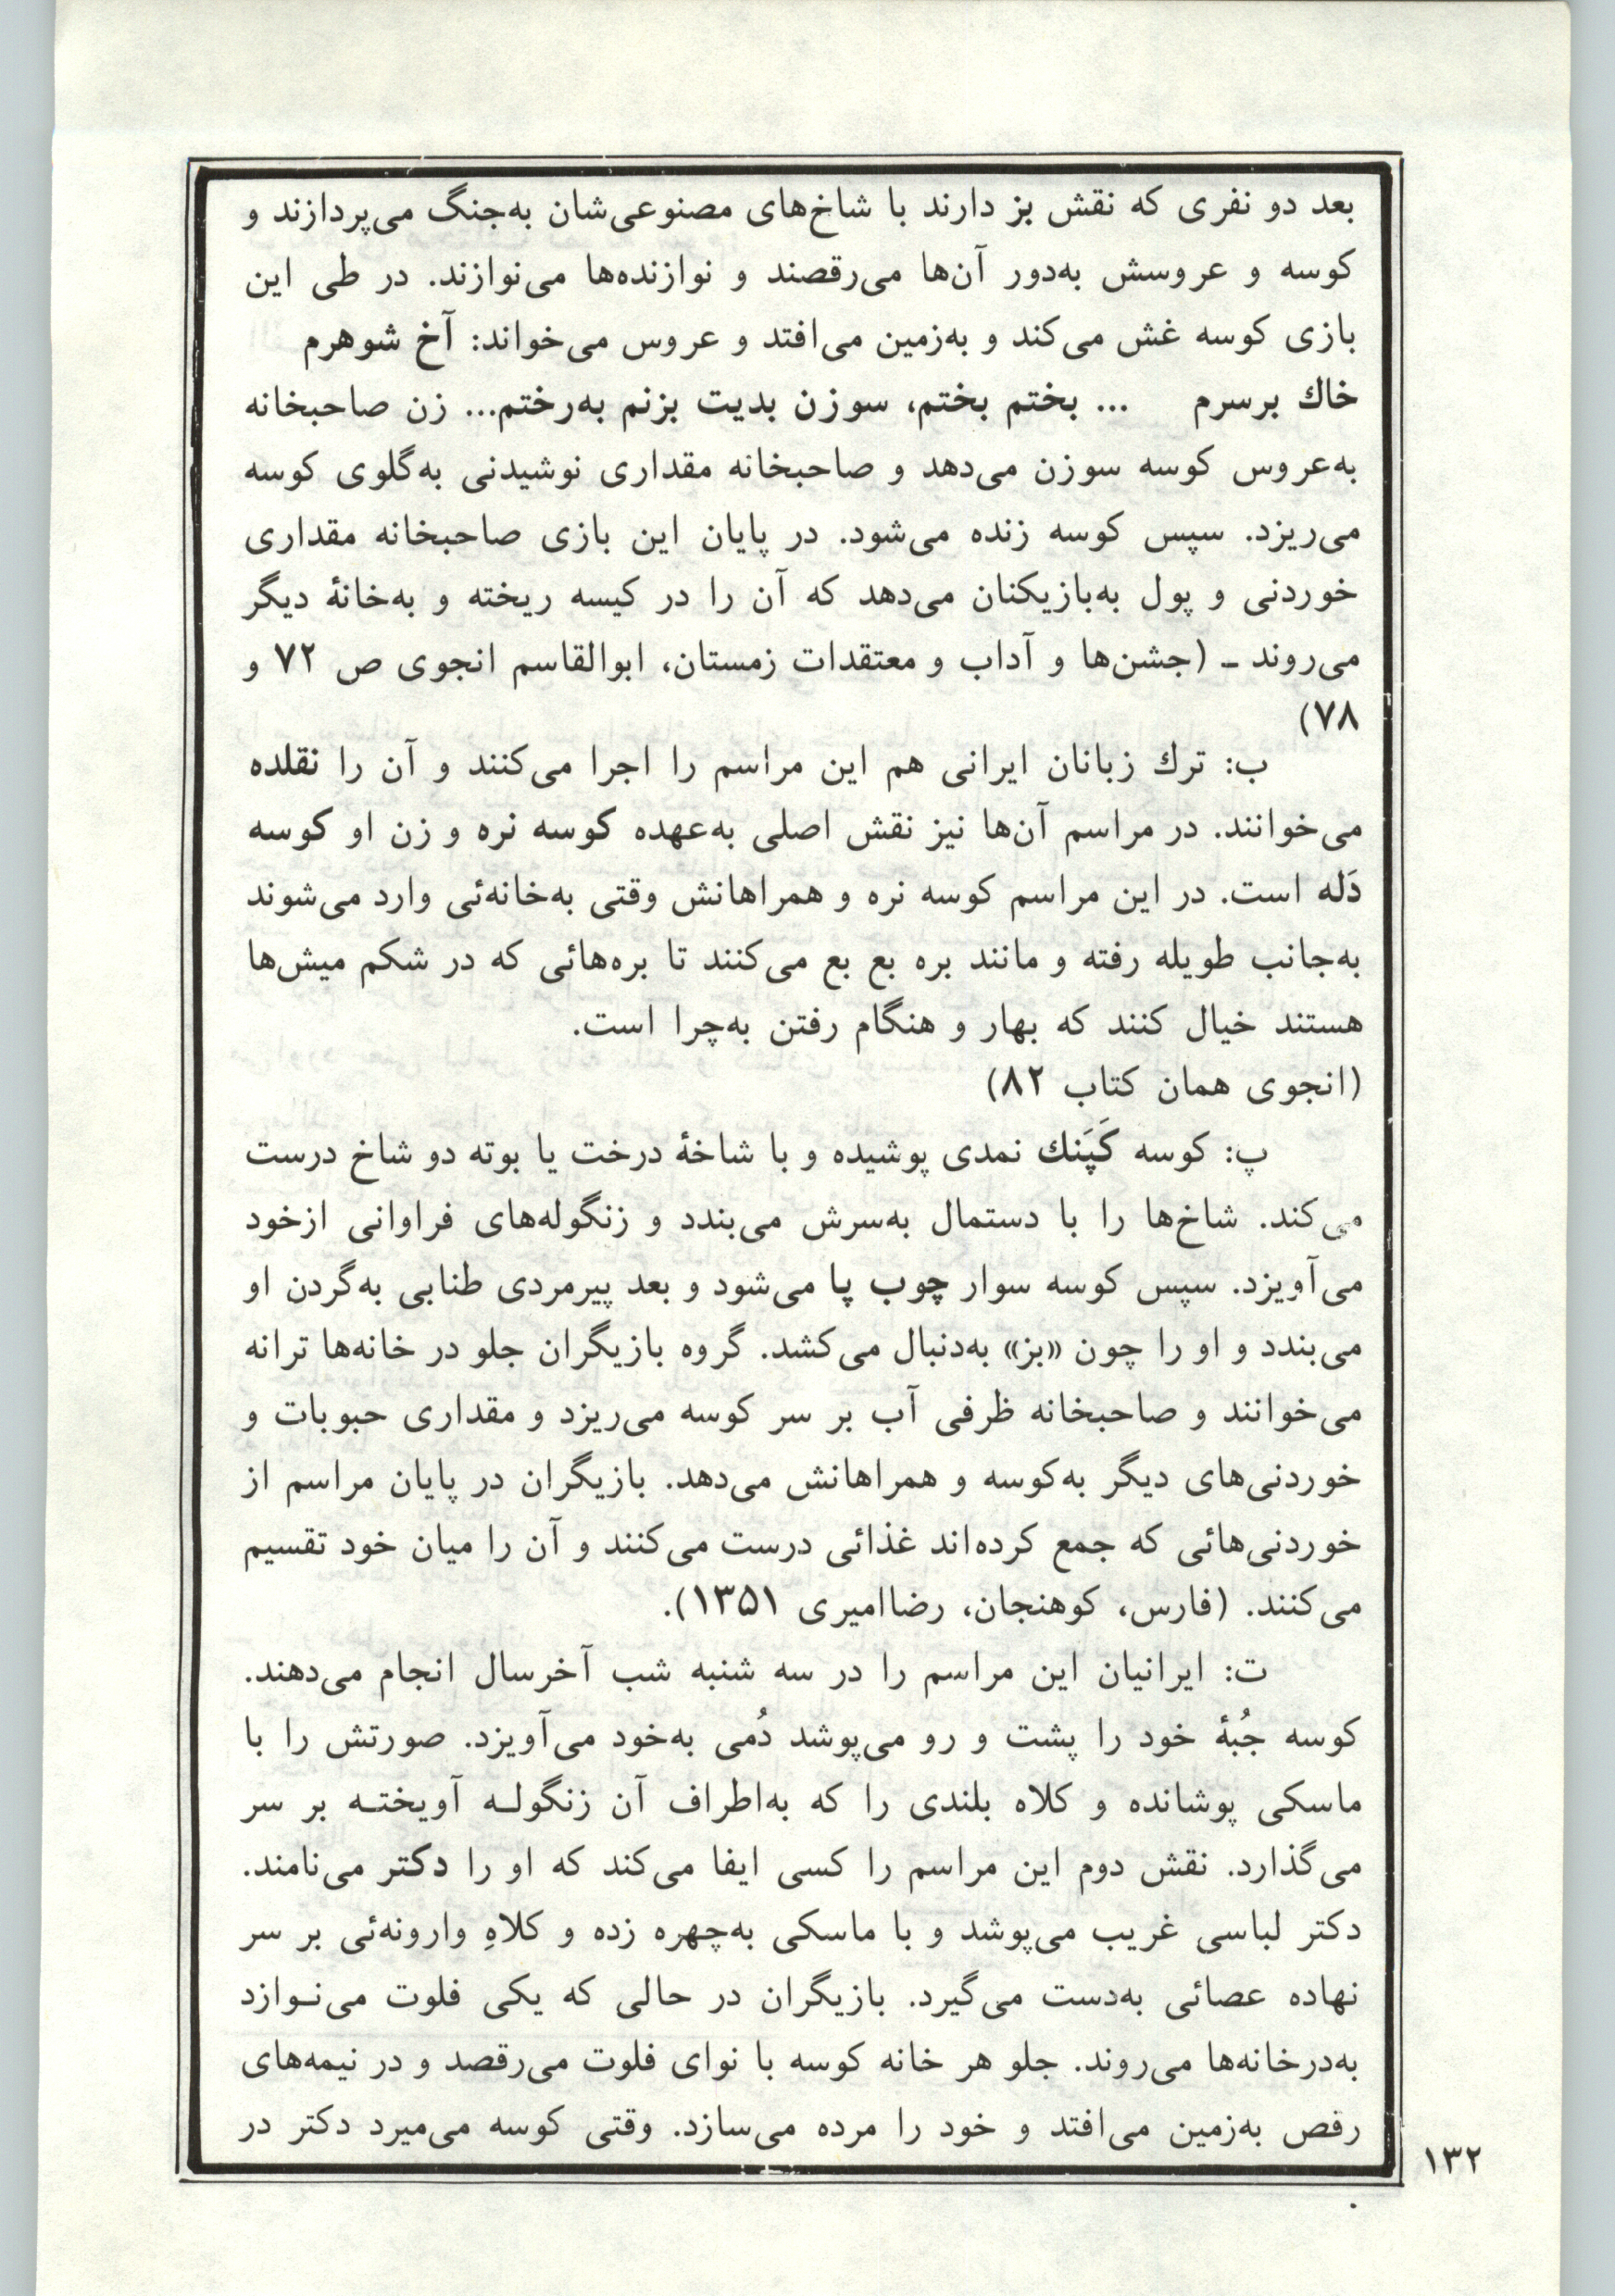 بعد دو نفری که نقش بز دارند با شاخ‌های مصنوعی‌شان به‌جنگ می‌پردازند و
کوسه و عروسش به‌دور آن‌ها می‌رقصند و نوازنده‌ها می‌نوازند. در طی این
بازی کوسه غش می‌کند و به‌زمین می‌افتد و عروس می‌خواند: آخ شوهرم
خاك برسرم ... بختم بختم، سوزن بدیت بزنم به‌رختم... زن صاحبخانه
به‌عروس کوسه سوزن می‌دهد و صاحبخانه مقداری نوشیدنی به‌گلوی کوسه
می‌ریزد. سپس کوسه زنده می‌شود. در پایان این بازی صاحبخانه مقداری
خوردنی و پول به‌بازیکنان می‌دهد که آن را در کیسه ریخته و به‌خانهٔ دیگر
می‌روند ـ (جشن‌ها و آداب و معتقدات زمستان، ابوالقاسم انجوی ص ۷۲ و
۷۸)
ب: ترك زبانان ایرانی هم این مراسم را اجرا می‌کنند و آن را نقلده
می‌خوانند. در مراسم آن‌ها نیز نقش اصلی به‌عهده کوسه نره و زن او کوسه
دَله است. در این مراسم کوسه نره و همراهانش وقتی به‌خانه‌ئی وارد می‌شوند
به‌جانب طویله رفته و مانند بره بع بع می‌کنند تا بره‌هائی که در شکم میش‌ها
هستند خیال کنند که بهار و هنگام رفتن به‌چرا است.
(انجوی همان کتاب ۸۲)
پ: کوسه کَپَنك نمدی پوشیده و با شاخهٔ درخت یا بوته دو شاخ درست
می‌کند. شاخ‌ها را با دستمال به‌سرش می‌بندد و زنگوله‌های فراوانی ازخود
می‌آویزد. سپس کوسه سوار چوب پا می‌شود و بعد پیرمردی طنابی به‌گردن او
می‌بندد و او را چون «بز» به‌دنبال می‌کشد. گروه بازیگران جلو در خانه‌ها ترانه
می‌خوانند و صاحبخانه ظرفی آب بر سر کوسه می‌ریزد و مقداری حبوبات و
خوردنی‌های دیگر به‌کوسه و همراهانش می‌دهد. بازیگران در پایان مراسم از
خوردنی‌هائی که جمع کرده‌اند غذائی درست می‌کنند و آن را میان خود تقسیم
می‌کنند. (فارس، کوهنجان، رضاامیری ۱۳۵۱).
ت: ایرانیان این مراسم را در سه شنبه شب آخرسال انجام می‌دهند.
کوسه جُبهٔ خود را پشت و رو می‌پوشد دُمی به‌خود می‌آویزد. صورتش را با
ماسکی پوشانده و کلاه بلندی را که به‌اطراف آن زنگولـه آویختـه بر سر
می‌گذارد. نقش دوم این مراسم را کسی ایفا می‌کند که او را دکتر می‌نامند.
دکتر لباسی غریب می‌پوشد و با ماسکی به‌چهره زده و کلاهِ وارونه‌ئی بر سر
نهاده عصائی به‌دست می‌گیرد. بازیگران در حالی که یکی فلوت می‌نـوازد
به‌درخانه‌ها می‌روند. جلو هر خانه کوسه با نوای فلوت می‌رقصد و در نیمه‌های
رقص به‌زمین می‌افتد و خود را مرده می‌سازد. وقتی کوسه می‌میرد دکتر در
۱۳۲